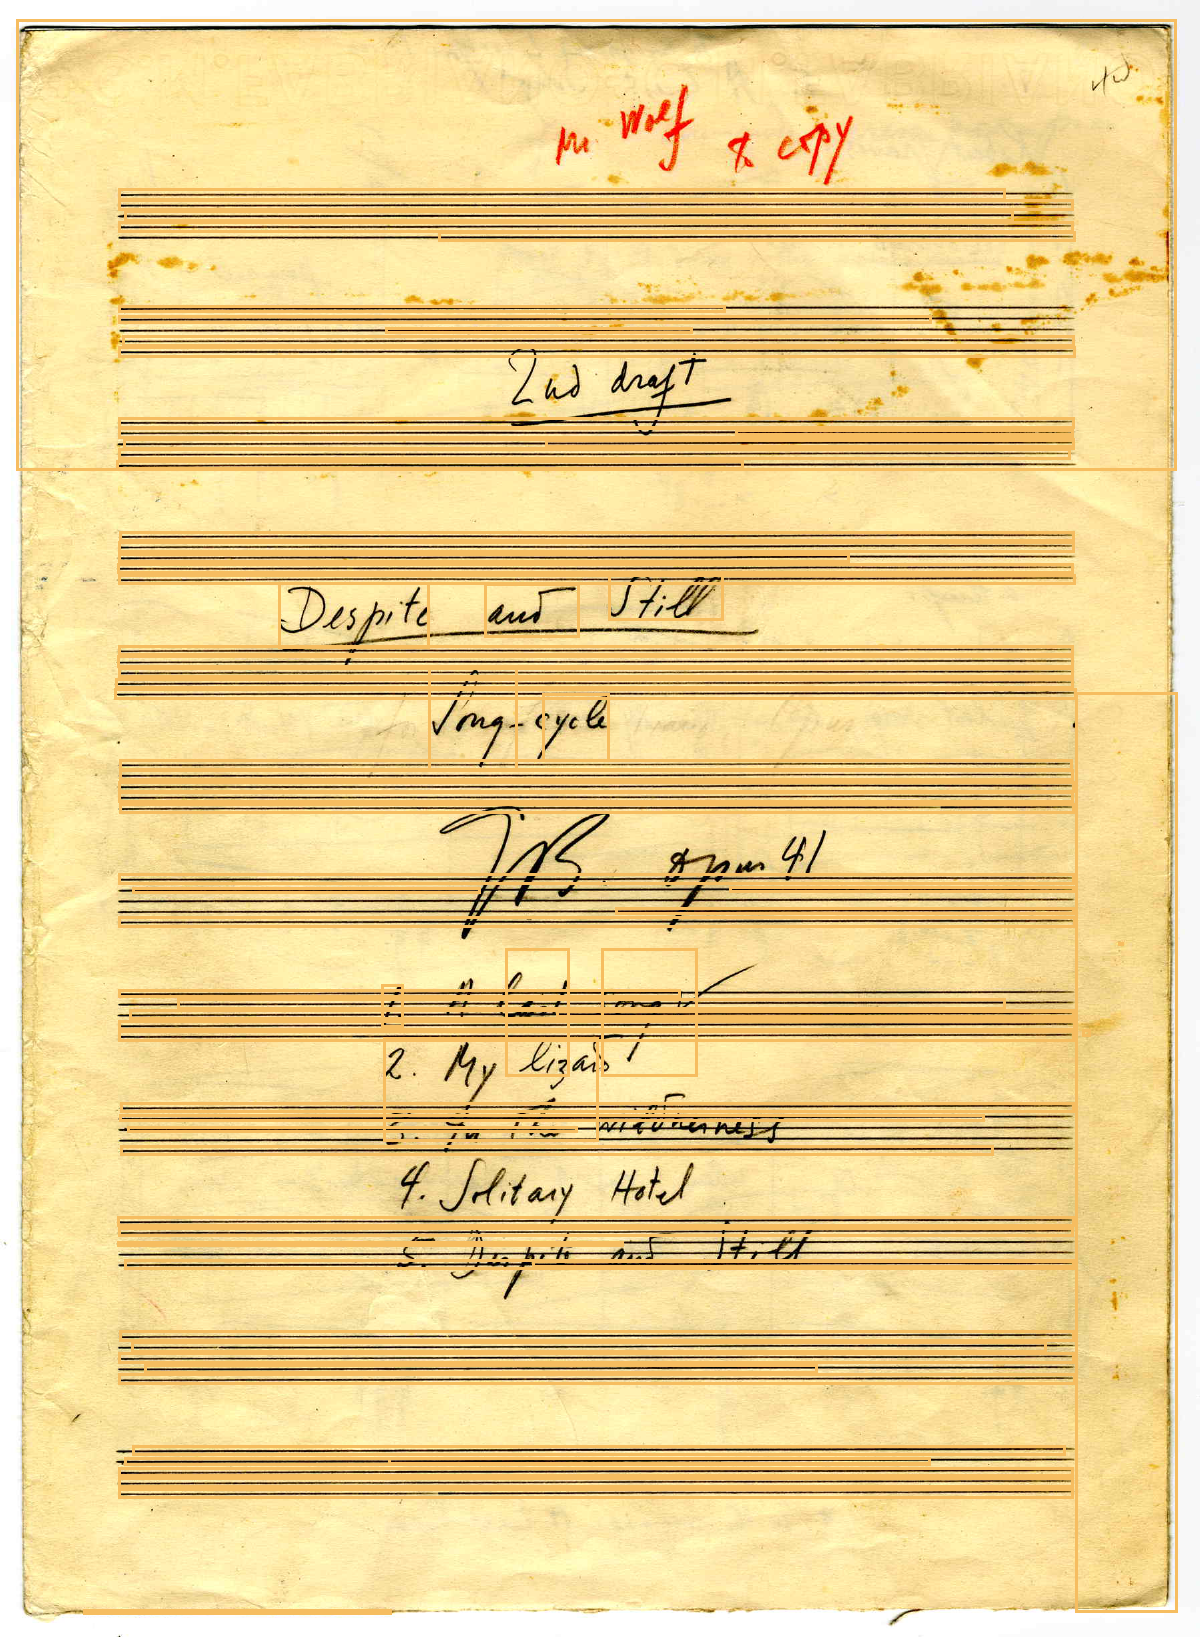 Mr Wolf to copy
2nd draft
Despite and Still
Song-cycle
Opus 41
1. A last song
2. My lizard
3. In the wilderness
4. Solitary Hotel
5. Despite and Still